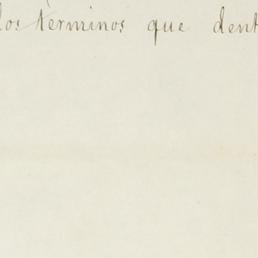 los términos que dent